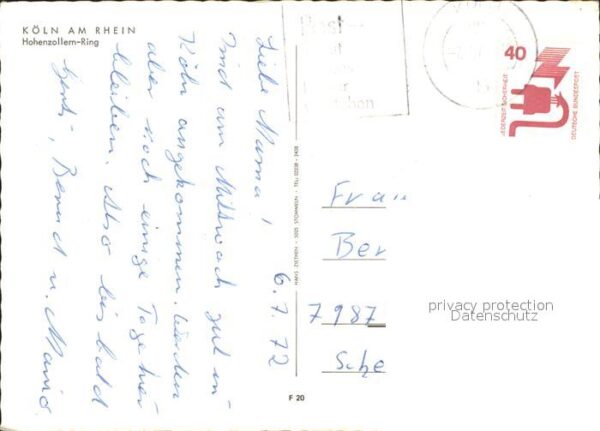 KÖLN AM RHEIN
Hohenzollern-Ring
6.7.72
Liebe Mama!
Sind am Mittwoch gut in
Köln angekommen. Werden
aber noch einige Tage hier
bleiben. Also bis bald
Bernd u. Mario.
HANS ZIETHEN · 5025 STOMMELN · TEL.: 02238-2408
F 20
Post
40
JEDERZEIT SICHERHEIT
DEUTSCHE BUNDESPOST
Frau
Ber
7987
Sche
privacy protection
Datenschutz